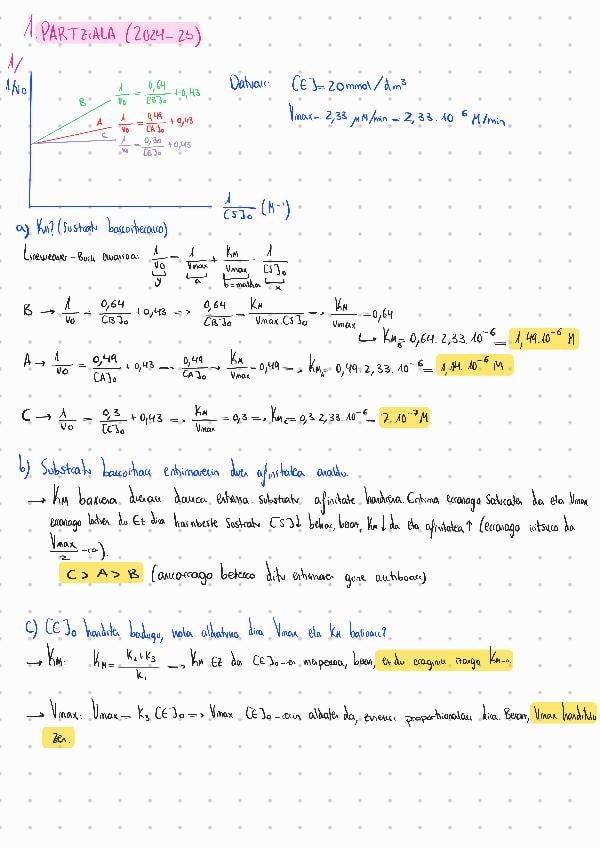 1. PARTZIALA (2024-25)
1/
1/V₀
B 1/V₀ = 0,64/[B]₀ + 0,43
A 1/V₀ = 0,49/[A]₀ + 0,43
C 1/V₀ = 0,30/[C]₀ + 0,43
1/[S]₀ (M⁻¹)
Datuak: [E] = 20 mmol/dm³
Vmax = 2,33 μM/min = 2,33·10⁻⁶ M/min
a) KM? (Sustratu bakoitzerako)
Lineweaver-Burk ekuazioa: 1/V₀ = 1/Vmax + KM/Vmax · 1/[S]₀
y a b = malda x
B → 1/V₀ = 0,64/[B]₀ + 0,43 => 0,64/[B]₀ = KM/Vmax·[S]₀ => KM/Vmax = 0,64
↳ KM_B = 0,64·2,33·10⁻⁶ = 1,49·10⁻⁶ M
A → 1/V₀ = 0,49/[A]₀ + 0,43 => 0,49/[A]₀ => KM/Vmax = 0,49 => KM_A = 0,49·2,33·10⁻⁶ = 1,14·10⁻⁶ M
C → 1/V₀ = 0,3/[C]₀ + 0,43 => KM/Vmax = 0,3 => KM_C = 0,3·2,33·10⁻⁶ = 7·10⁻⁷ M
b) Substratu bakoitzak entzimarekin duen afinitatea
→ KM baxuena duenak dauka entzima substratu afinitate handiena. Entzima azkarrago da eta Vmax
du. Ez dira hainbeste Sustratu [S]↓ behar, beraz, KM↓ da eta afinitatea↑ (
Vmax/2 -ra).
C > A > B (
c) [E]₀ handitzen badugu, nola aldatuko dira Vmax eta KM balioak?
→ KM: KM = K₂+K₃/K₁ → KM Ez da [E]₀-ren menpekoa, beraz, ez du eraginik izango KM-n.
→ Vmax: Vmax = K₃·[E]₀ => Vmax [E]₀-rekin aldatzen da, zuzenki proportzionalak dira. Beraz, Vmax handituko
zen.